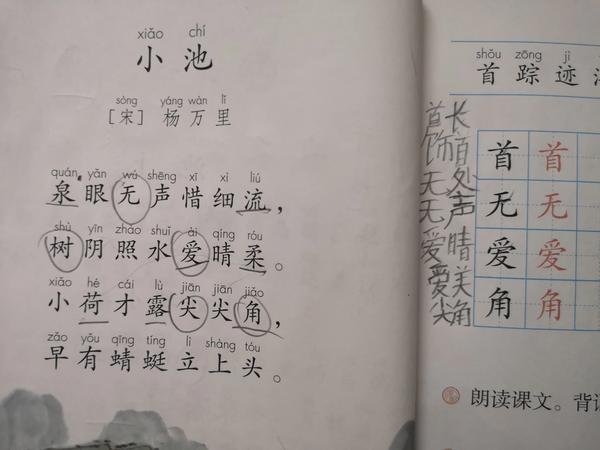 xiǎo chí
小池
sòng yáng wàn lǐ
［宋］杨万里
quán yǎn wú shēng xī xì liú
泉眼无声惜细流，
shù yīn zhào shuǐ ài qíng róu
树阴照水爱晴柔。
xiǎo hé cái lù jiān jiān jiǎo
小荷才露尖尖角，
zǎo yǒu qīng tíng lì shàng tóu
早有蜻蜓立上头。
首长
饰
无处
无声
爱晴
爱美
尖角
shǒu zōng jì
首踪迹
首首
无无
爱爱
角角
朗读课文。背